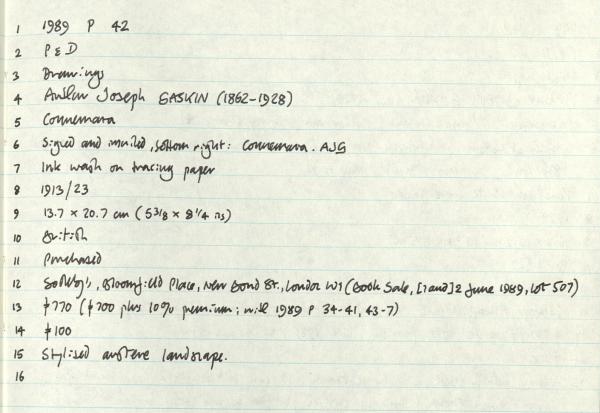 1 1989 P 42
2 P & D
3 Drawings
4 Arthur Joseph GASKIN (1862-1928)
5 Connemara
6 Signed and inscribed, bottom right: Connemara. AJG
7 Ink wash on tracing paper
8 1913/23
9 13.7 × 20.7 cm (5 3/8 × 8 1/4 ins)
10 British
11 Purchased
12 Sotheby's, Bloomfield Place, New Bond St., London W1 (Book Sale, [1 and] 2 June 1989, Lot 507)
13 £770 (£700 plus 10% premium; with 1989 P 34-41, 43-7)
14 £100
15 Stylised austere landscape.
16